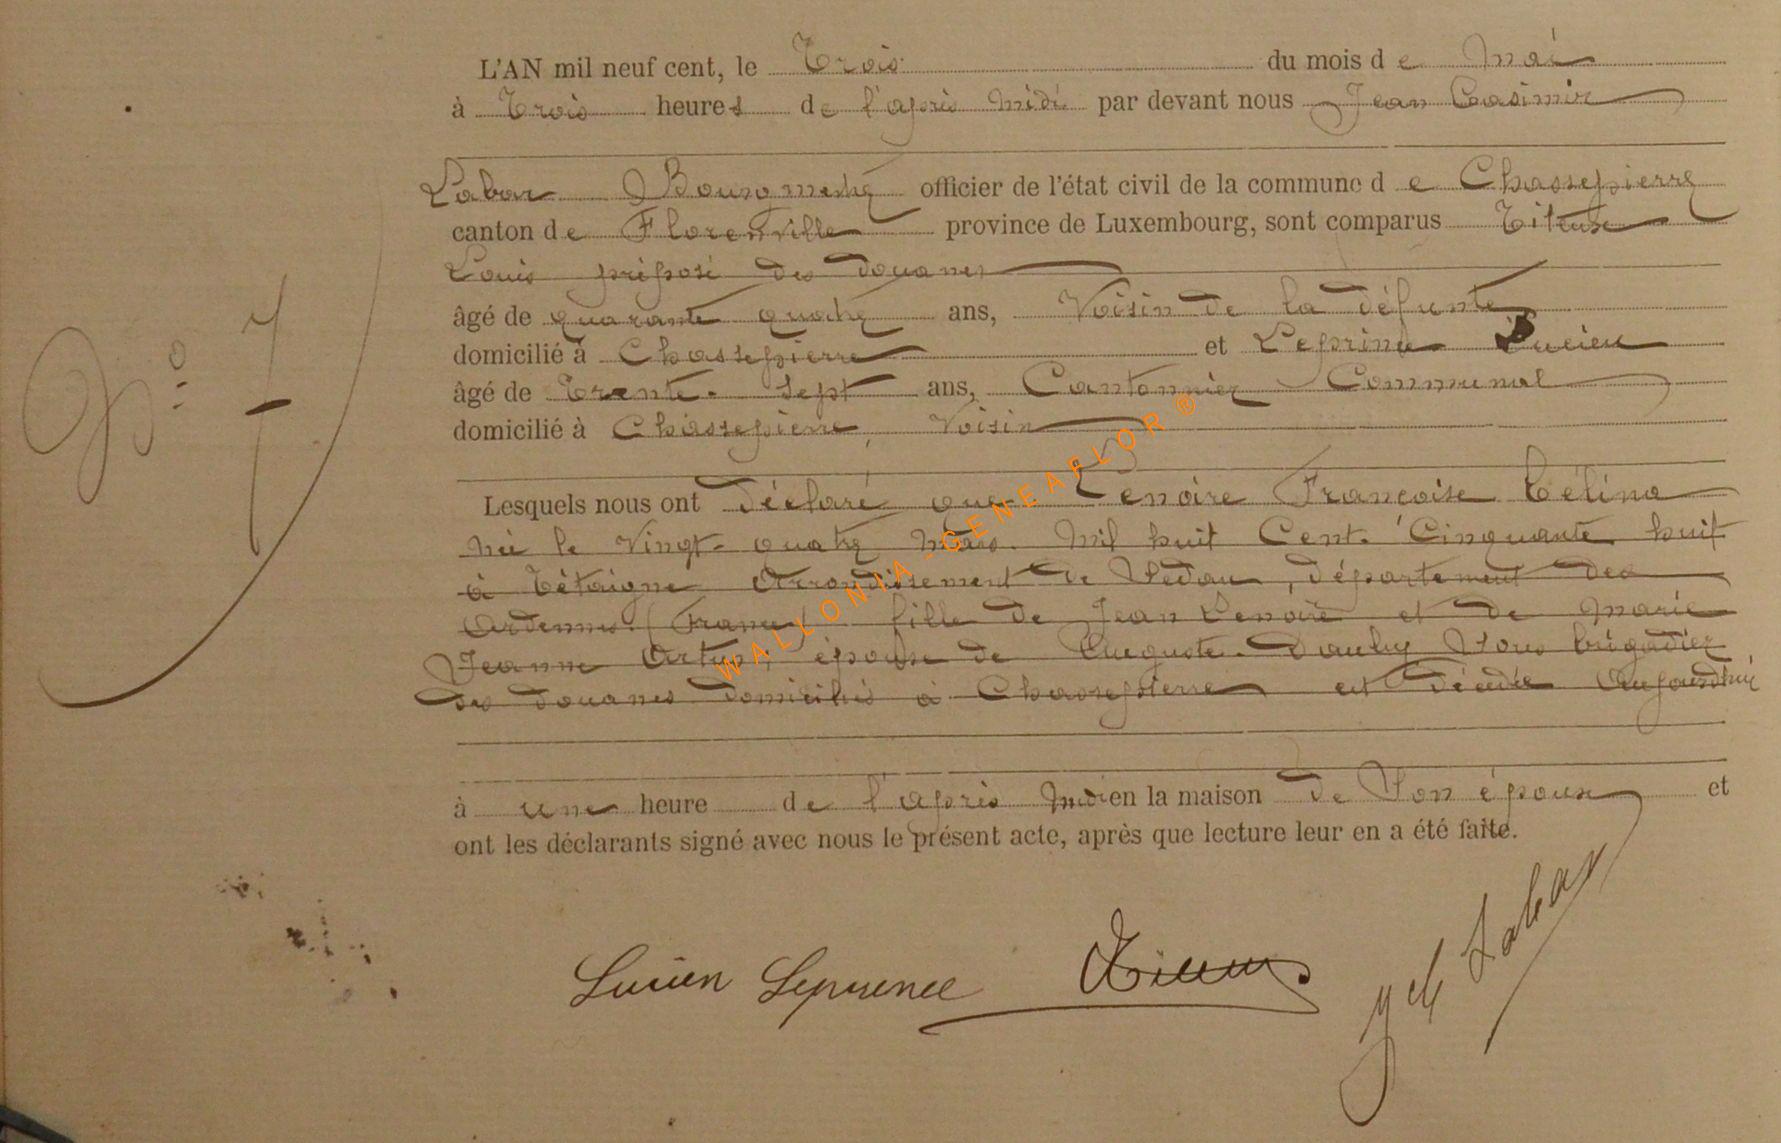 L'AN mil neuf cent, le Trois du mois de Mai
à Trois heures de l'après midi par devant nous Jean Casimir
Labar Bourgmestre officier de l'état civil de la commune de Chassepierre
canton de Florenville province de Luxembourg, sont comparus
Louis préposé des douanes
âgé de quarante quatre ans, Voisin de la défunte
domicilié à Chassepierre et Leprince Lucien
âgé de Trente-Sept ans, Cantonnier Communal
domicilié à Chassepierre, Voisin
Lesquels nous ont déclaré que Lenoire Françoise Célina
née le Vingt-quatre Mars Mil huit Cent Cinquante huit
à Tétaigne Arrondissement de Sedan, département des
Ardennes (France) fille de Jean Lenoire et de Marie
Jeanne Artus, épouse de Auguste Dauby Sous brigadier
des douanes domiciliés à Chassepierre est décédée Aujourd'hui
à une heure de l'après Midi en la maison de Son époux et
ont les déclarants signé avec nous le présent acte, après que lecture leur en a été faite.
No 7
Lucien Leprince
J Labar
WALLONIA - GENEAFLOR ®